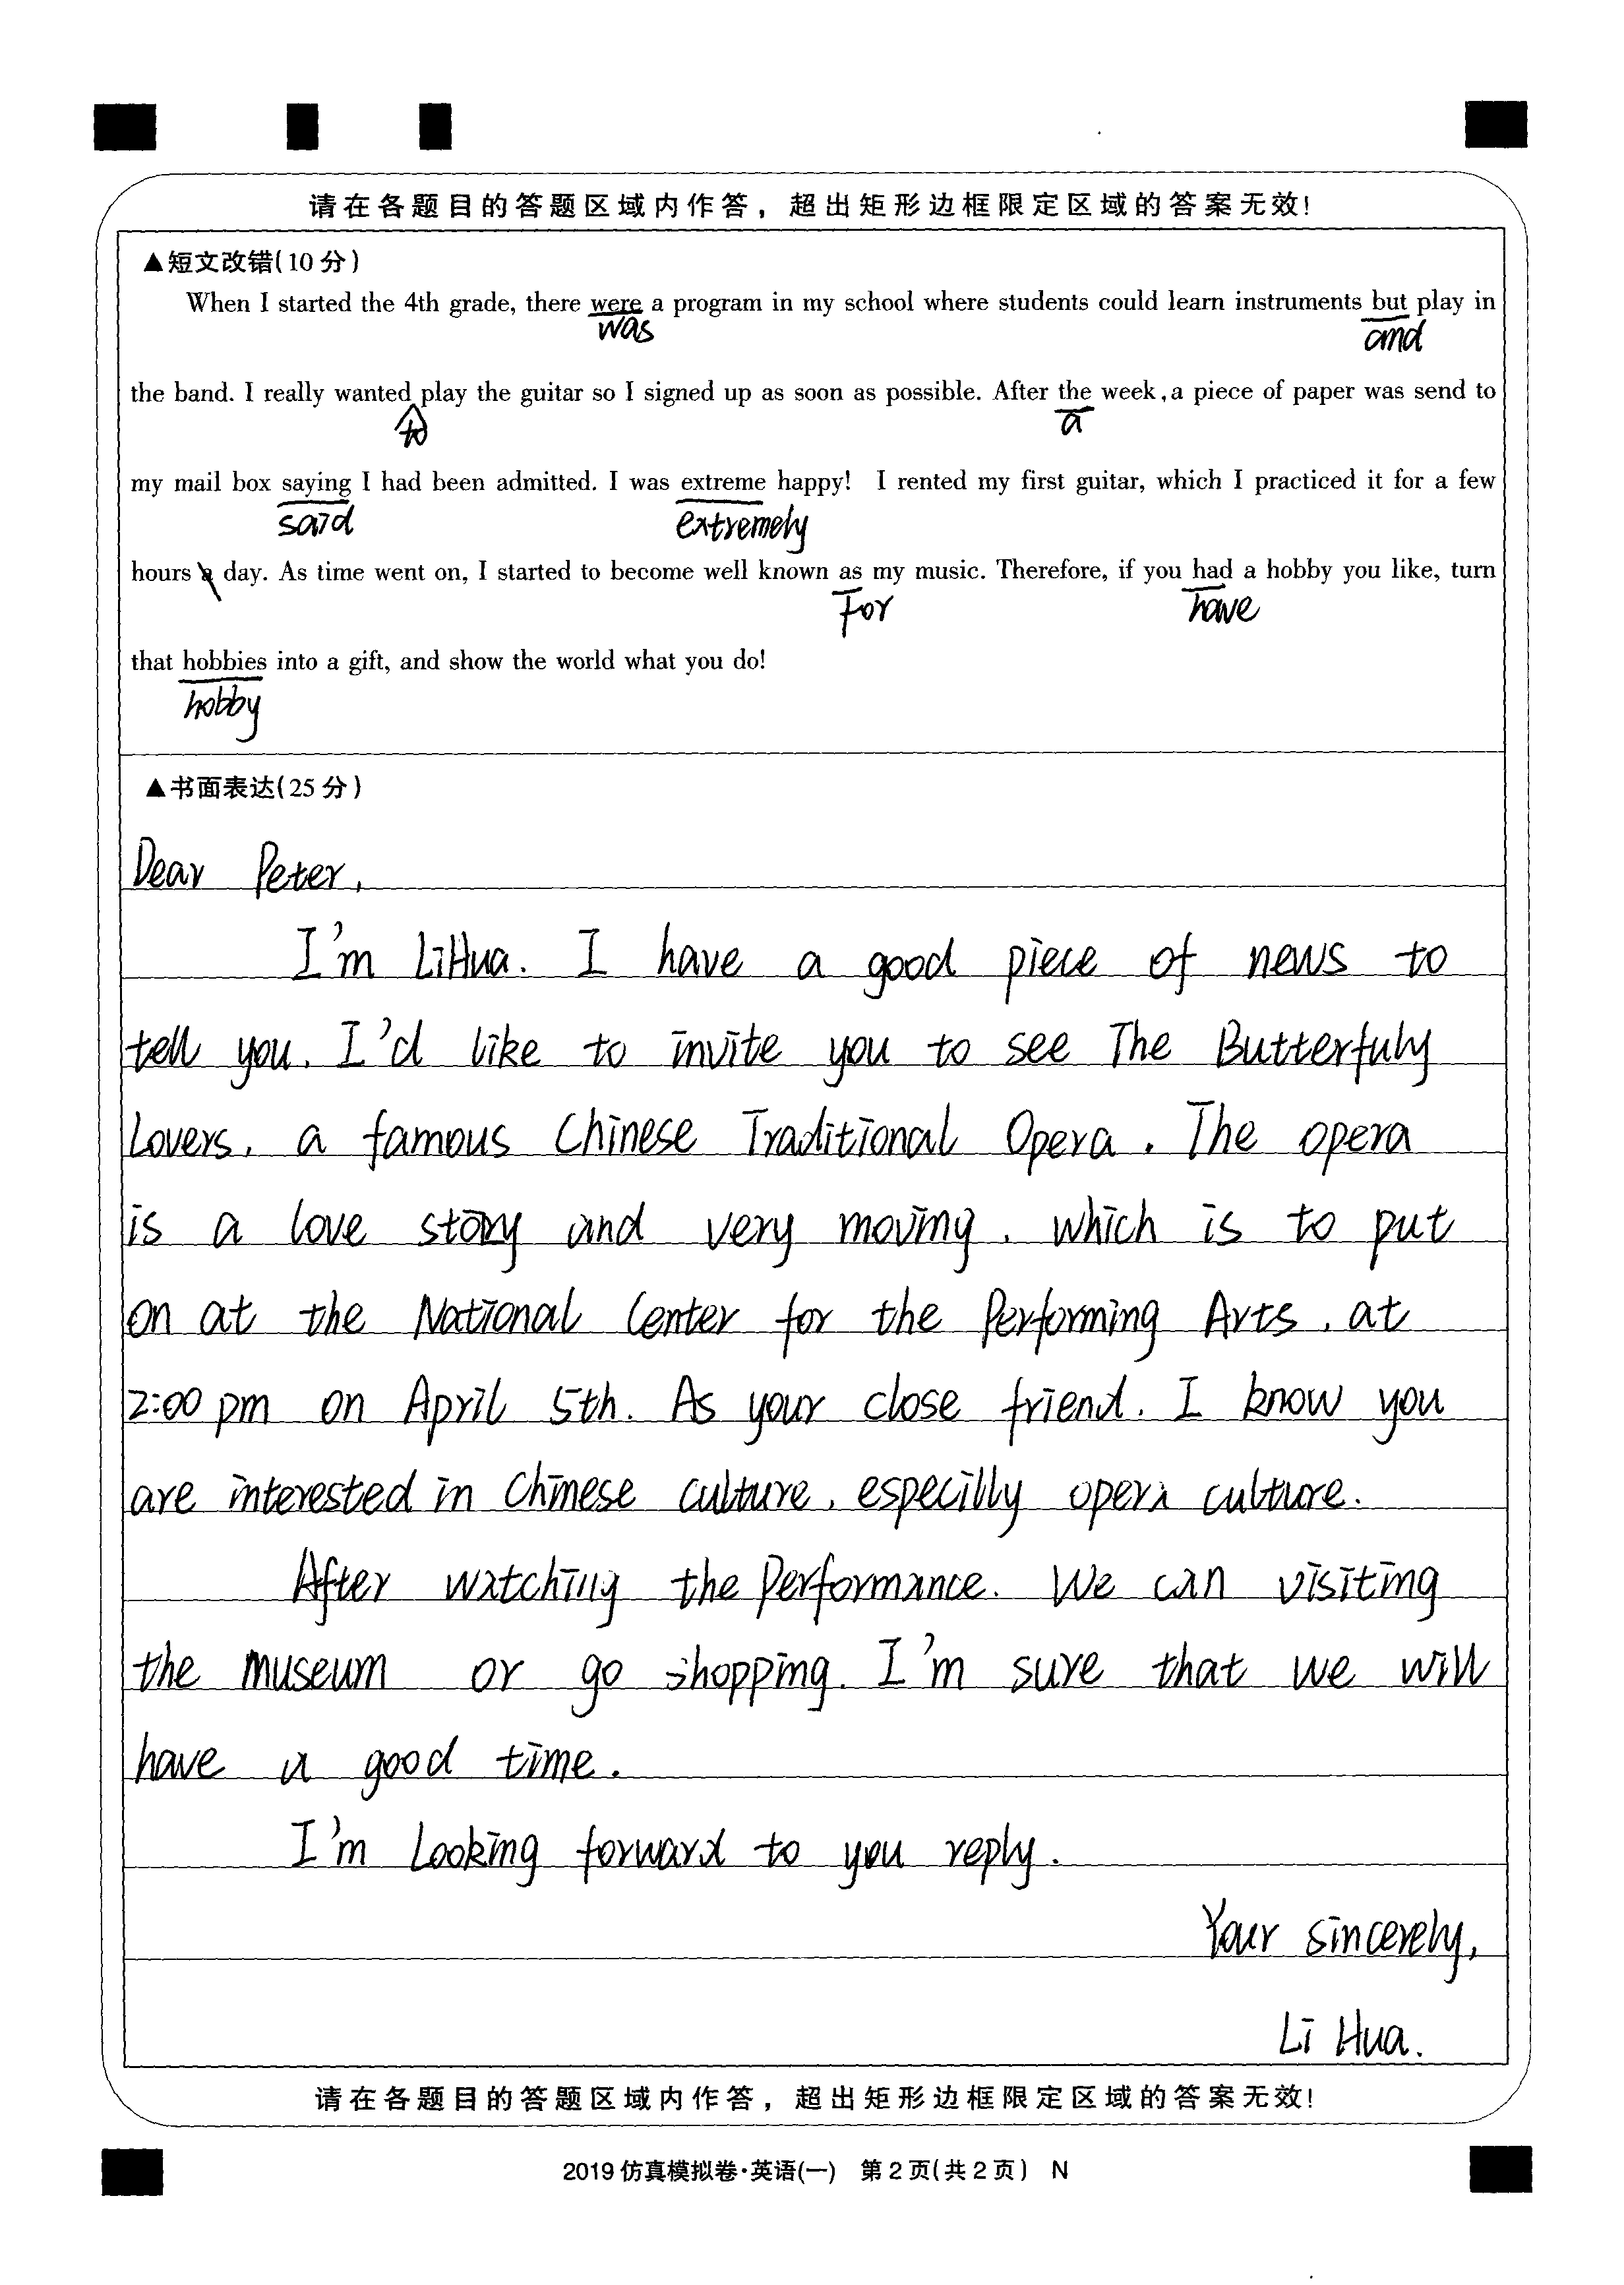 请在各题目的答题区域内作答，超出矩形边框限定区域的答案无效!
▲短文改错(10分)
When I started the 4th grade, there were a program in my school where students could learn instruments but play in
was
and
the band. I really wanted play the guitar so I signed up as soon as possible. After the week, a piece of paper was send to
to
a
my mail box saying I had been admitted. I was extreme happy! I rented my first guitar, which I practiced it for a few
said
extremely
hours a day. As time went on, I started to become well known as my music. Therefore, if you had a hobby you like, turn
For
have
that hobbies into a gift, and show the world what you do!
hobby
▲书面表达(25分)
Dear Peter,
I'm LiHua. I have a good piece of news to
tell you. I'd like to invite you to see The Butterfuly
Lovers, a famous Chinese Traditional Opera. The opera
is a love story and very moving, which is to put
on at the National Center for the Performing Arts, at
2:00 pm on April 5th. As your close friend. I know you
are interested in Chinese culture, especilly opera culture.
After watching the Performance. We can visiting
the museum or go shopping. I'm sure that we will
have a good time.
I'm Looking forward to you reply.
Your sincerely,
Li Hua.
请在各题目的答题区域内作答，超出矩形边框限定区域的答案无效!
2019仿真模拟卷·英语(一) 第2页(共2页) N